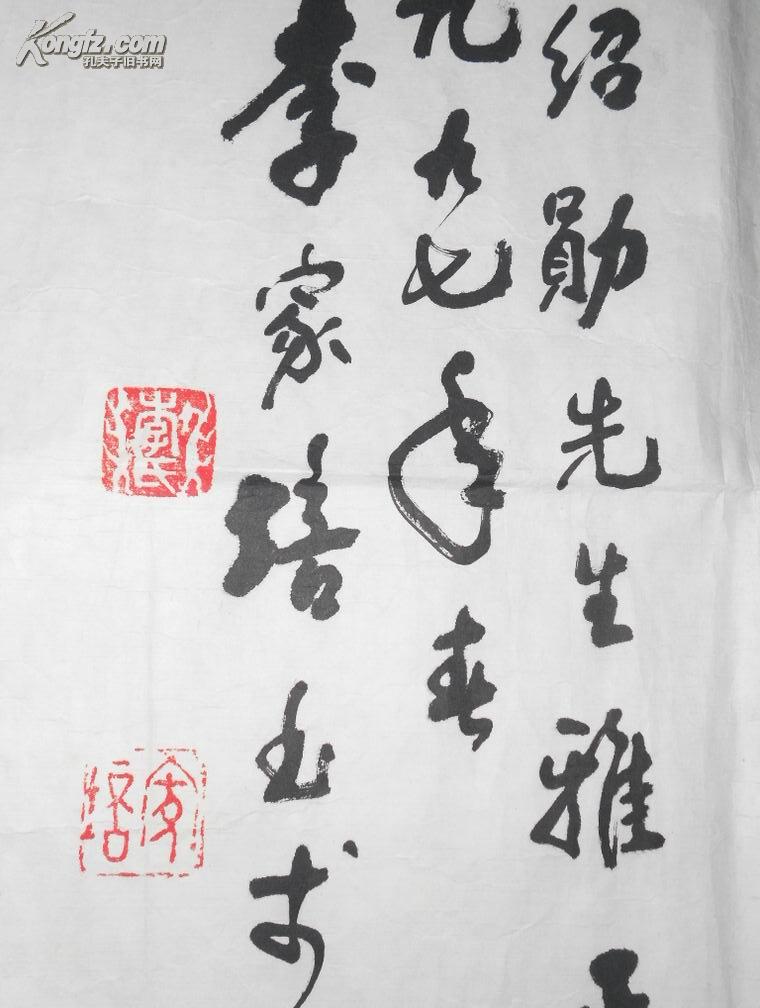 绍勋先生雅正
九九七年春
李家培书于
家培
Kongfz.com
孔夫子旧书网